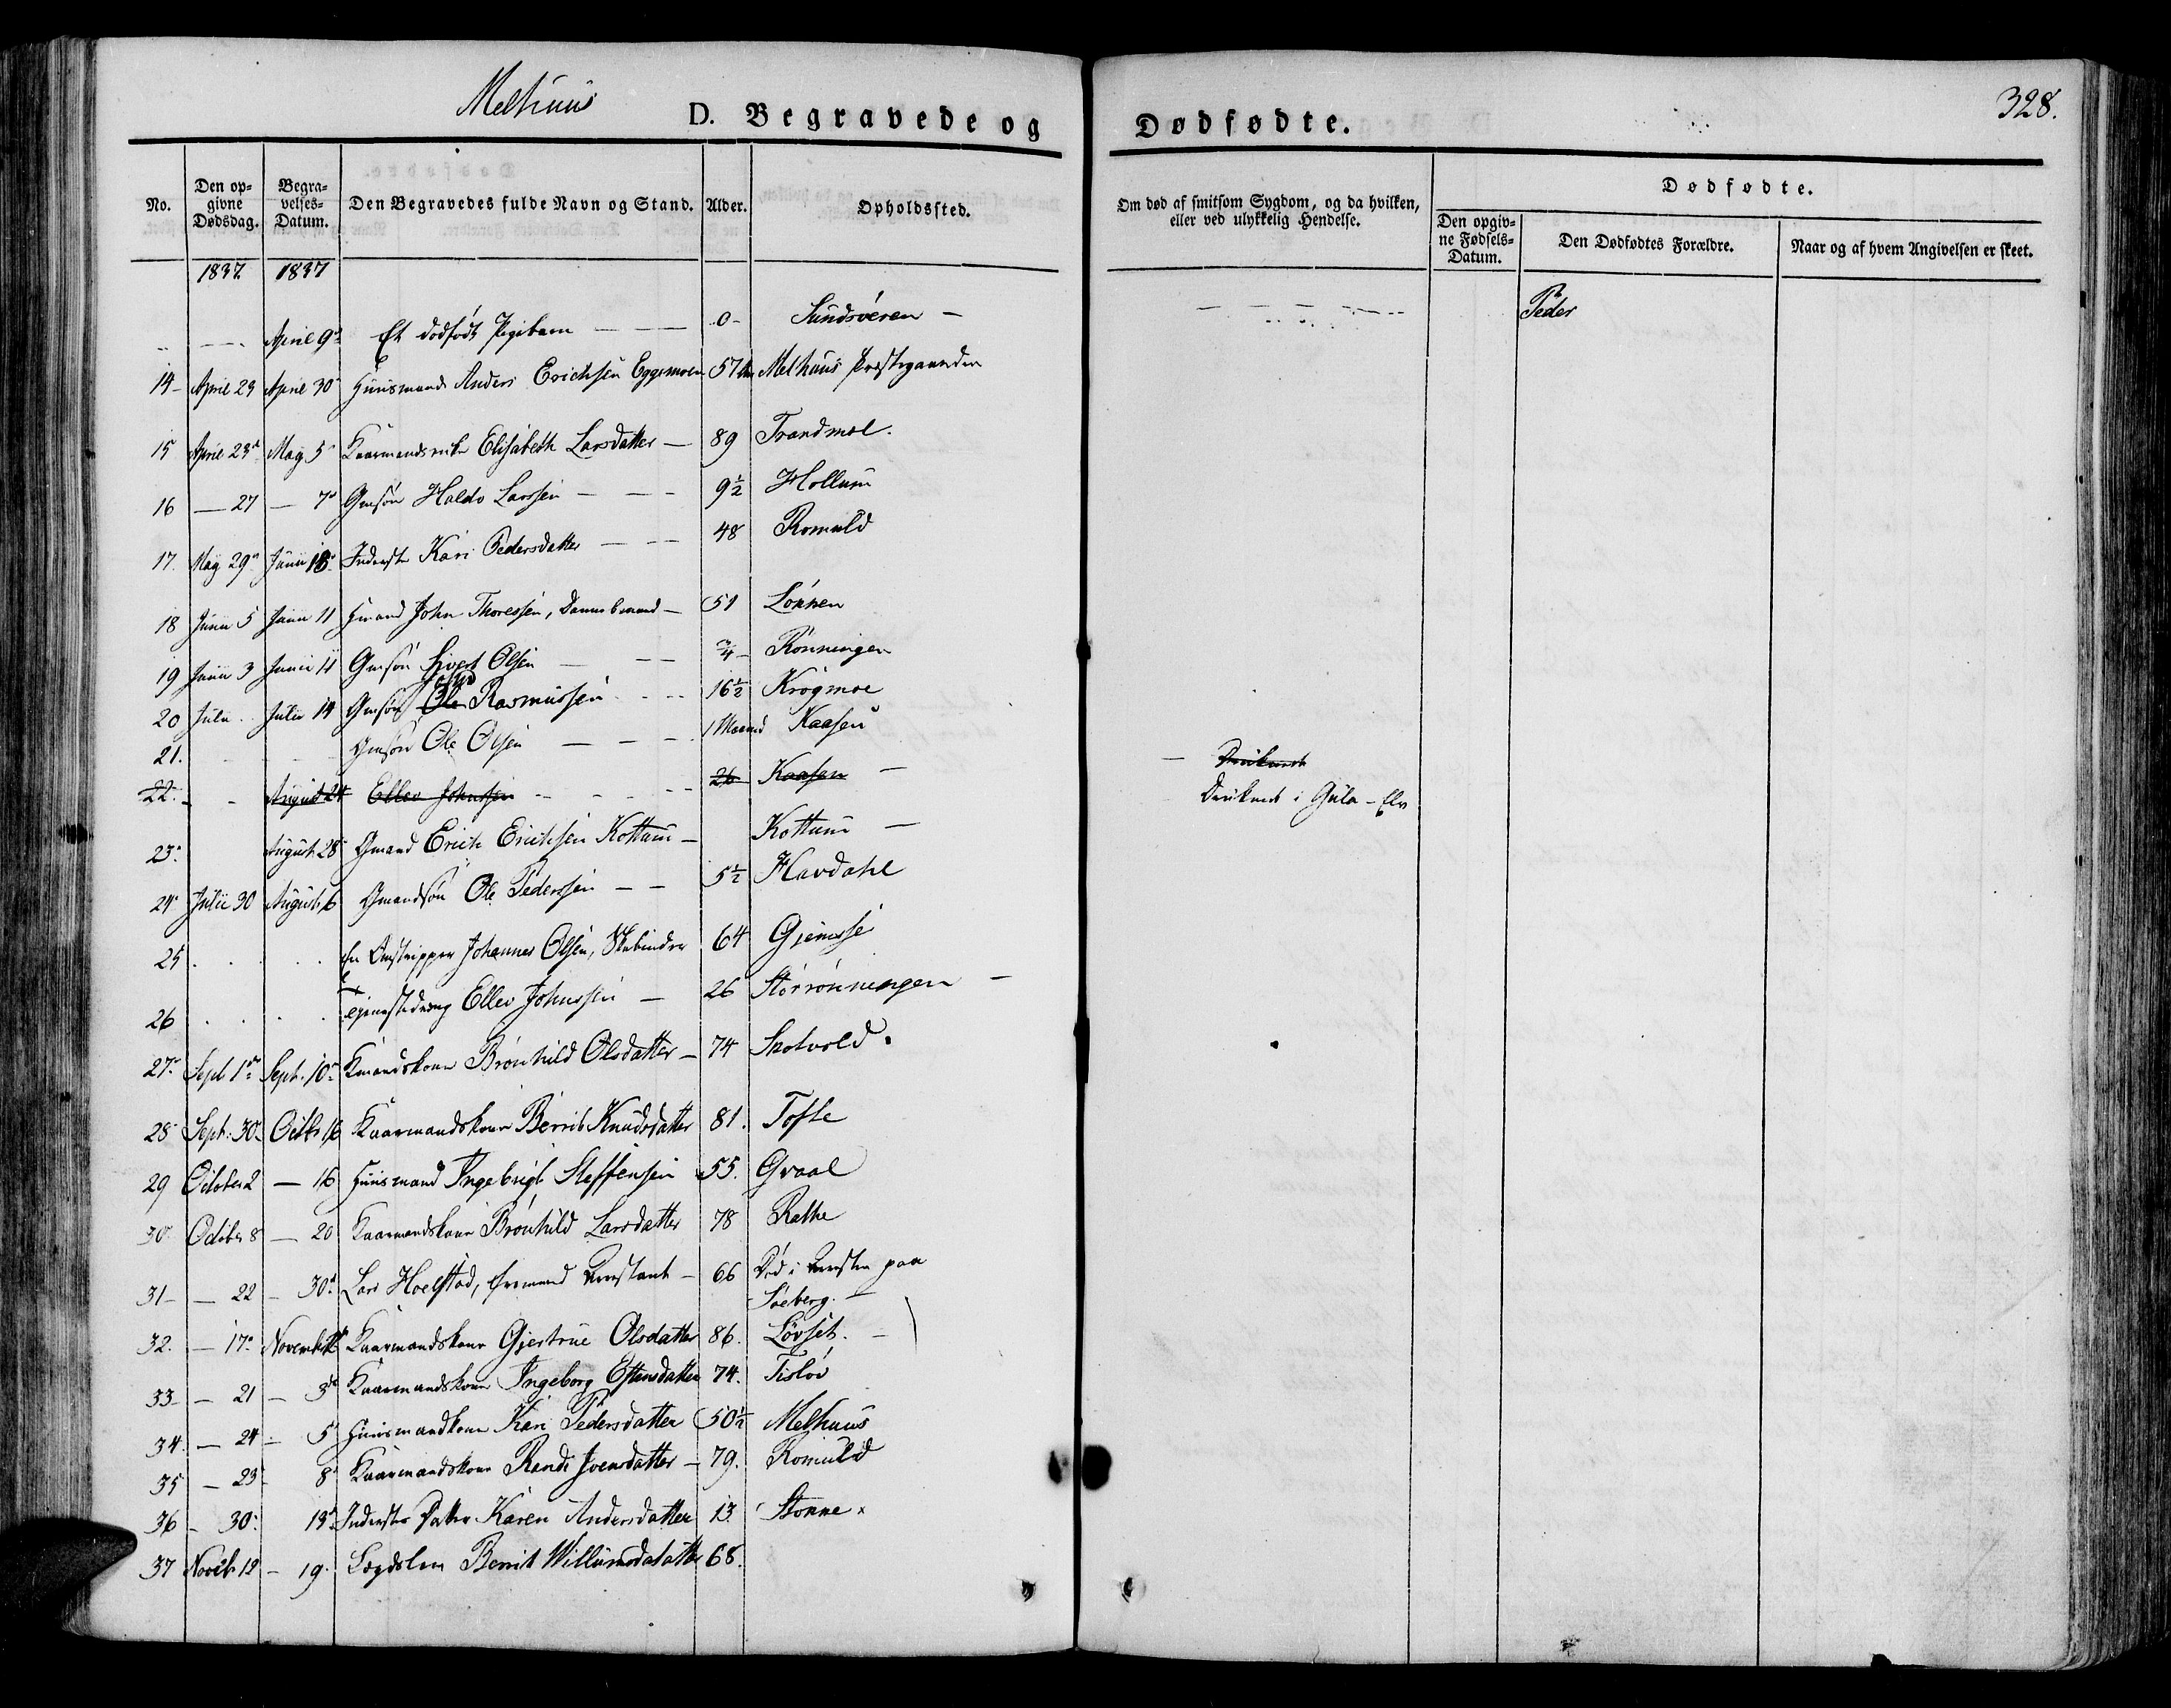 Melhuus
D. Begravede og
Dødfødte.
328.
No.
Den opgivne Dødsdag.
Begravelses-Datum.
Den Begravedes fulde Navn og Stand.
Alder.
Opholdssted.
Om død af smitsom Sygdom, og da hvilken, eller ved ulykkelig Hendelse.
Dødfødte.
Den opgivne Fødsels-Datum.
Den Dødfødtes Forældre.
Naar og af hvem Angivelsen er skeet.
1837. 1837
April 9 Et dødfødt Pigebarn 0 Sundsveren Peder
14 April 23 April 30 Huusmand Anders Erichsen Eggemoen 57 Melhuus Præstegaarden
15 April 23 May 5 Kaarmands Elisabeth Larsdatter 89 Trandmæl.
16 — 27 — 7 Gmsøn Haldo Larssen 9½ Hollum
17. May 29 Junii Inderste Kari Pedersdatter 48 Romuld
18 Junii 5 Junii 11 Hmand John Thoressen, 51 Lønnen
19 Junii 3 Junii 11 Gmsøn Sivert Olsen ¾ Rønningen
20 Julii Julii 14 Gmsøn Ole Rasmussen 16½ Krogmoe
21. Gmsøn Ole Olsen 1 Maaned Kaasen
22. August 24 Ellev Johnssen 26 Kaasen Druknede
Druknet i Gula-Elv
23. August 28 Gmand Erich Erichsen Kottum Kottum
24 Julii 30 August 6 Gmandsøn Ole Pederssen 5½ Havdahl
25 En Johannes Olsen, 64 Gjemse
26 Tjenestedreng Ellev Johnssen 26 Størrønningen
27. Sept 1 Sept. 10 Kmandskone Brønhild Olsdatter 74 Skotvold
28 Sept: 30 Octbr 16 Kaarmandskone Berrit Knudsdatter 81. Tofte
29 October 2 — 16 Huusmand Ingebrigt Steffensen 55. Gvaal
30. October 8 — 20 Kaarmandskone Brønhild Larsdatter 78 Rathe
31 — 22 — 30 Lars Hoelstad, 66 Død i paa
Søeberg.
32. — 17 November Kaarmandskone Gjertrue Olsdatter 86. Løvset.
33 — 21 — 3 Kaarmandskone Ingeborg Estensdatter 74. Tisløv
34. — 24 — 5 Huusmandkone Kari Pedersdatter 50½ Melhuus
35 — 23 8 Kaarmandskone Randi Joensdatter 79. Romuld
36 — 30 13 Inderstes Datter Karen Andersdatter 13 Stokke
37 Novbr 12 — 19. Lægdslem Berrit Willumsdatatter 68.